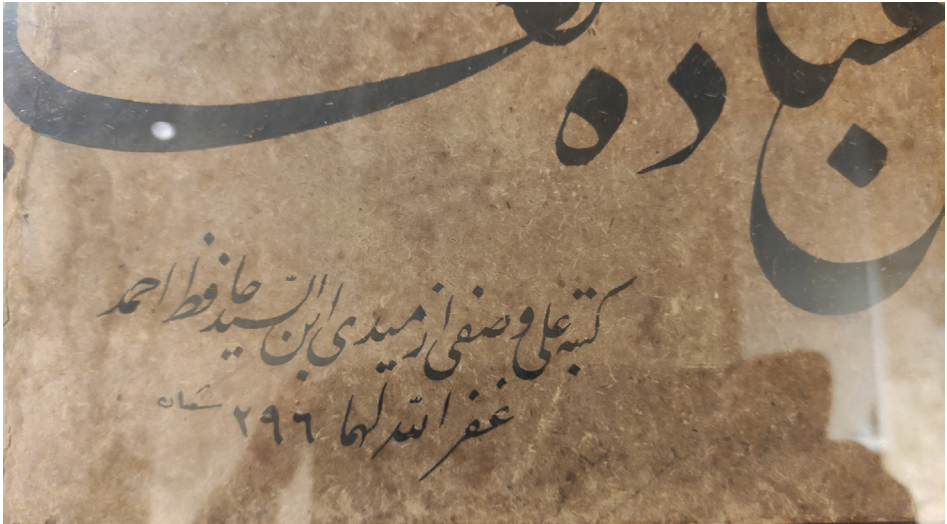 عباده
كتبه علی وصفی ازمیدی ابن السید حافظ احمد
غفر الله لهما ٢٩٦ شعبان